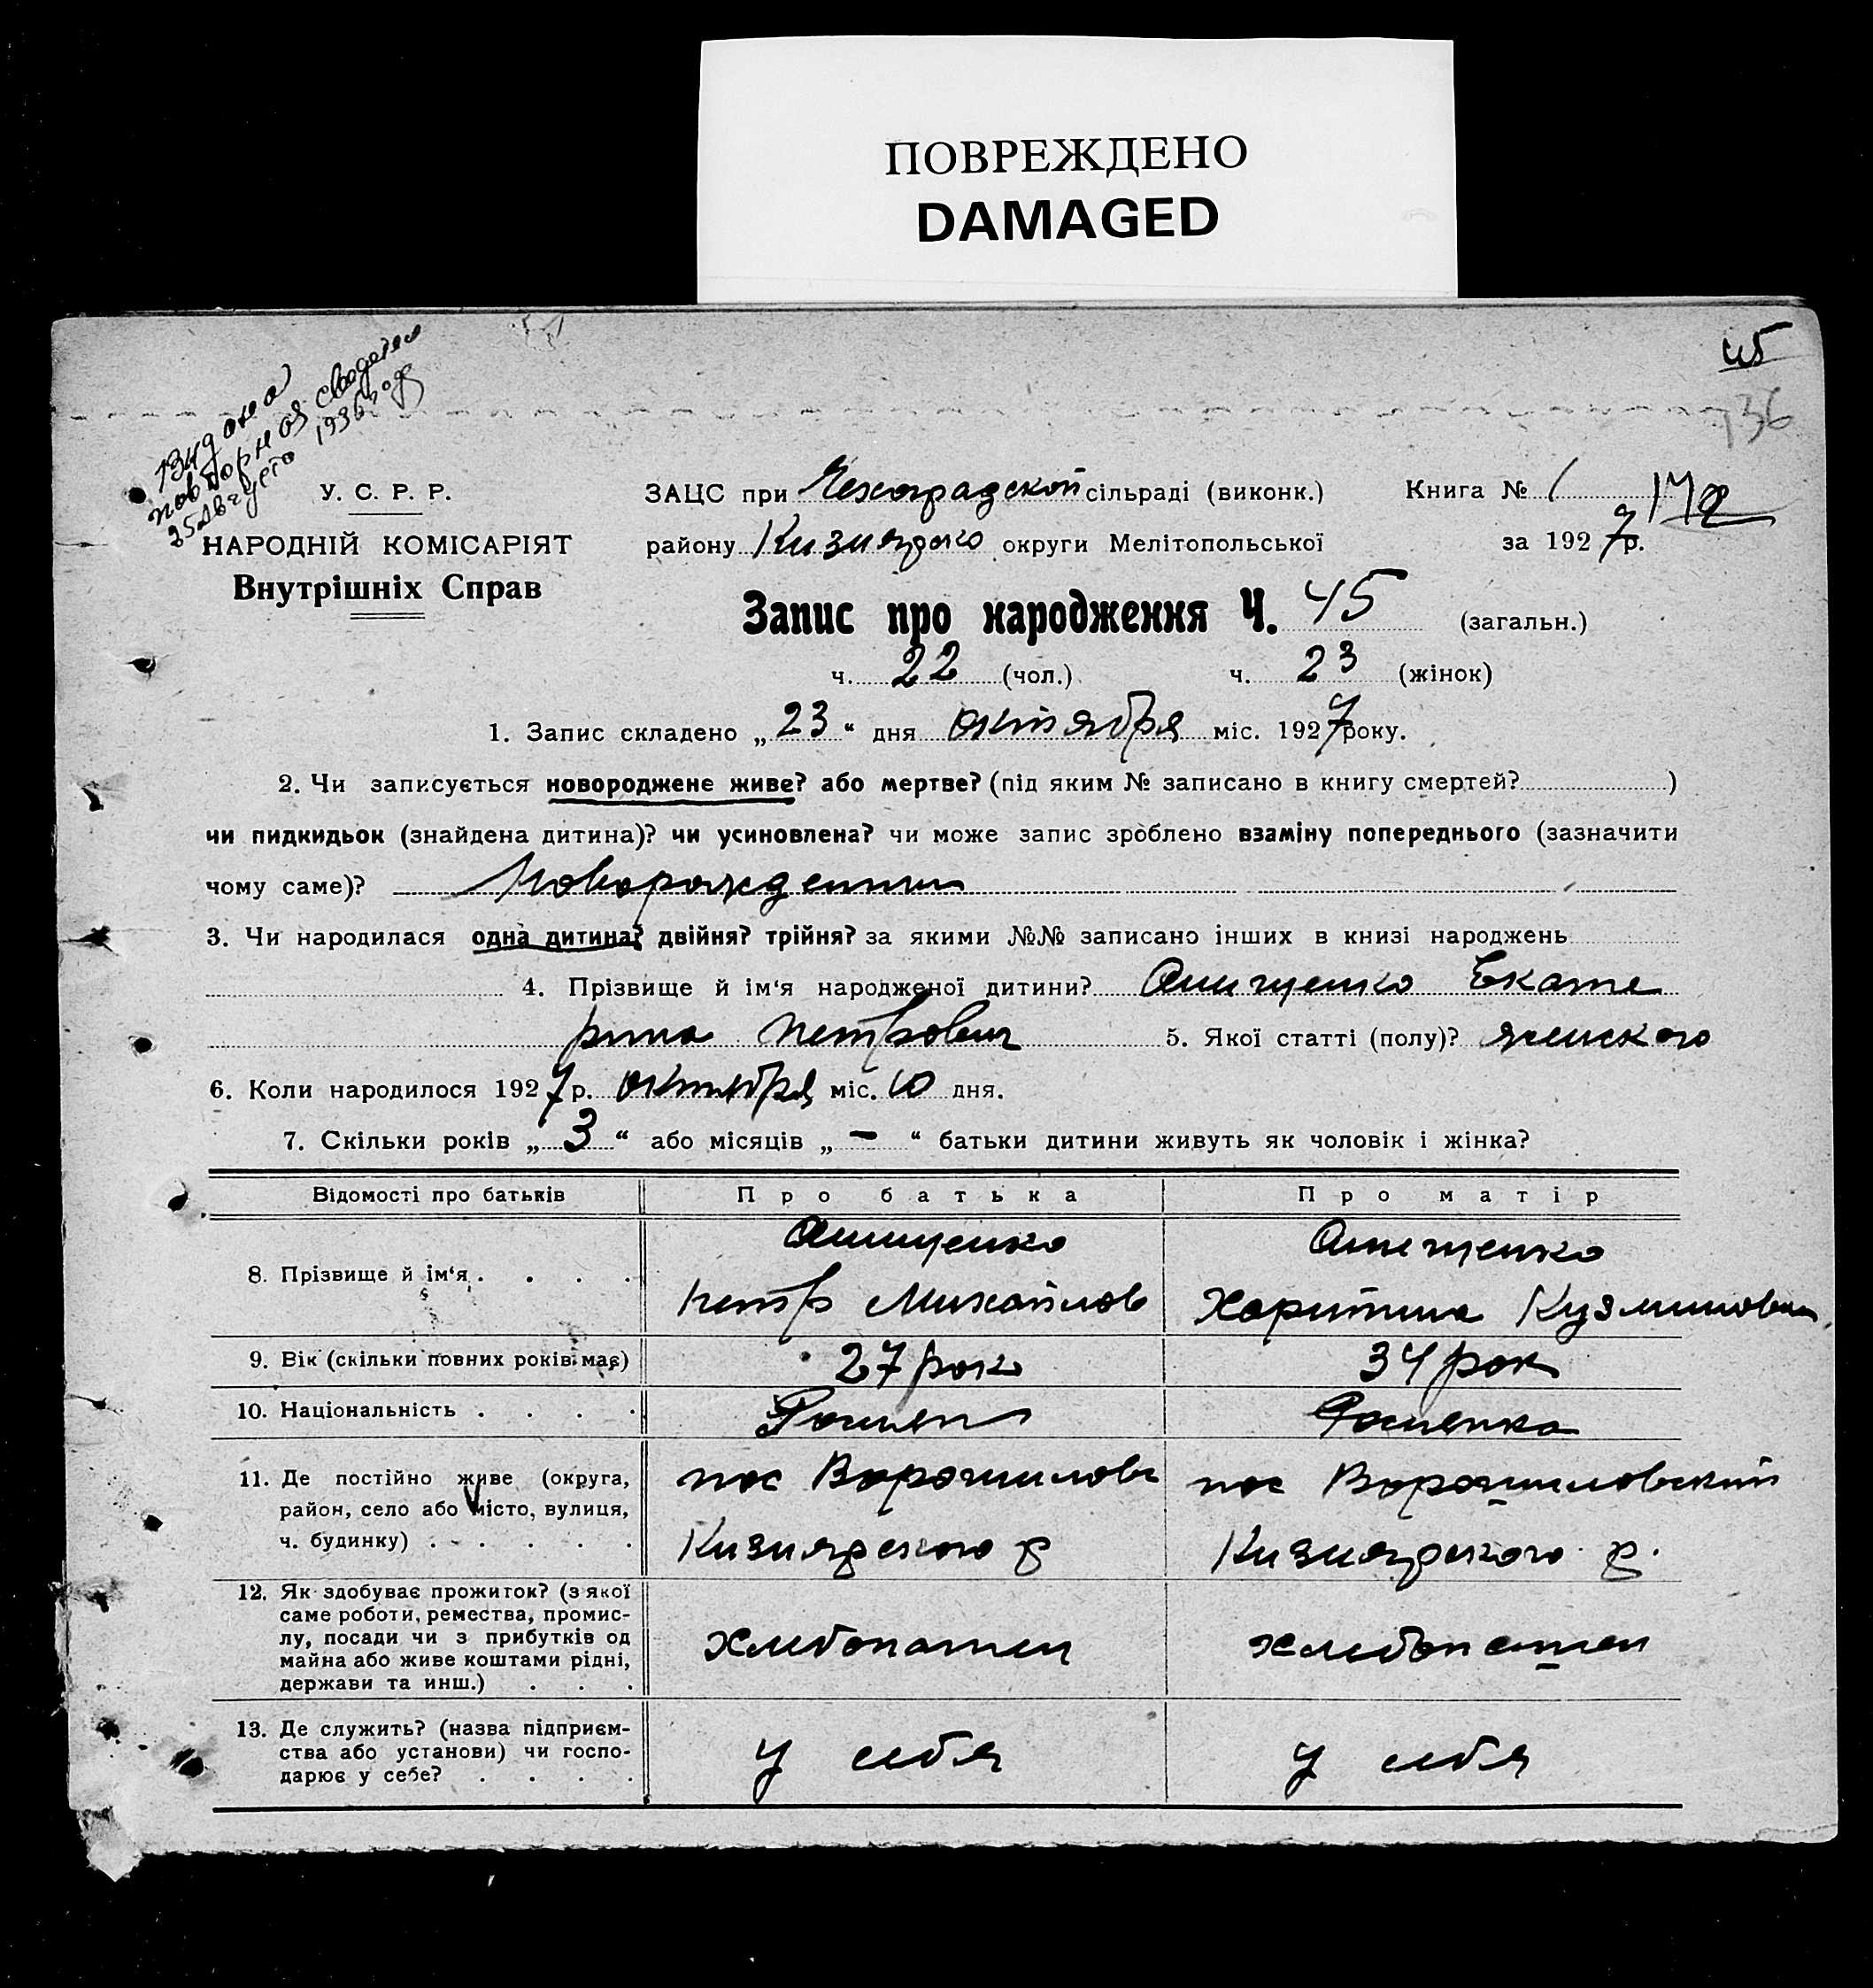 ПОВРЕЖДЕНО
DAMAGED
45
136
повторноя свадетел
25 Августа 1936 год
У. С. Р. Р.
НАРОДНІЙ КОМІСАРІЯТ
Внутрішніх Справ
ЗАЦС при Чехоградской сільраді (виконк.) Книга № 1
району Кизиярско округи Мелітопольської за 1927 р.
Запис про народження Ч. 45 (загальн.)
ч. 22 (чол.) ч. 23 (жінок)
1. Запис складено „23“ дня октября міс. 1927 року.
2. Чи записується новороджене живе? або мертве? (під яким № записано в книгу смертей? )
чи пидкидьок (знайдена дитина)? чи усиновлена? чи може запис зроблено взаміну попереднього (зазначити
чому саме)?
3. Чи народилася одна дитина? двійня? трійня? за якими №№ записано інших в книзі народжень
4. Прізвище й ім‘я народженої дитини? Онищенко Екате
рина Петровна 5. Якої статті (полу)? женского
6. Коли народилось 1927 р. октября міс. 10 дня.
7. Скільки років „3“ або місяців „–“ батьки дитини живуть як чоловік і жінка?
Відомості про батьків Про батька Про матір
8. Прізвище й ім‘я . . . .
Онищенко Онищенко
Петр Михайлов Харитина Кузминовна
9. Вік (скільки повних років має) 27 рок 34 рок
10. Національність . . . .
11. Де постійно живе (округа,
район, село або місто, вулиця,
ч. будинку) . . . . . .
пос Ворошиловс пос Ворошиловский
Кизиярского р Кизиярского р.
12. Як здобуває прожиток? (з якої
саме роботи, ремества, промис-
лу, посади чи з прибутків од
майна або живе коштами рідні,
держави та инш.) . . .
хлебопашец хлебопашец
13. Де служить? (назва підприєм-
ства або установи) чи госпо-
дарює у себе? . . . .
у себя у себя